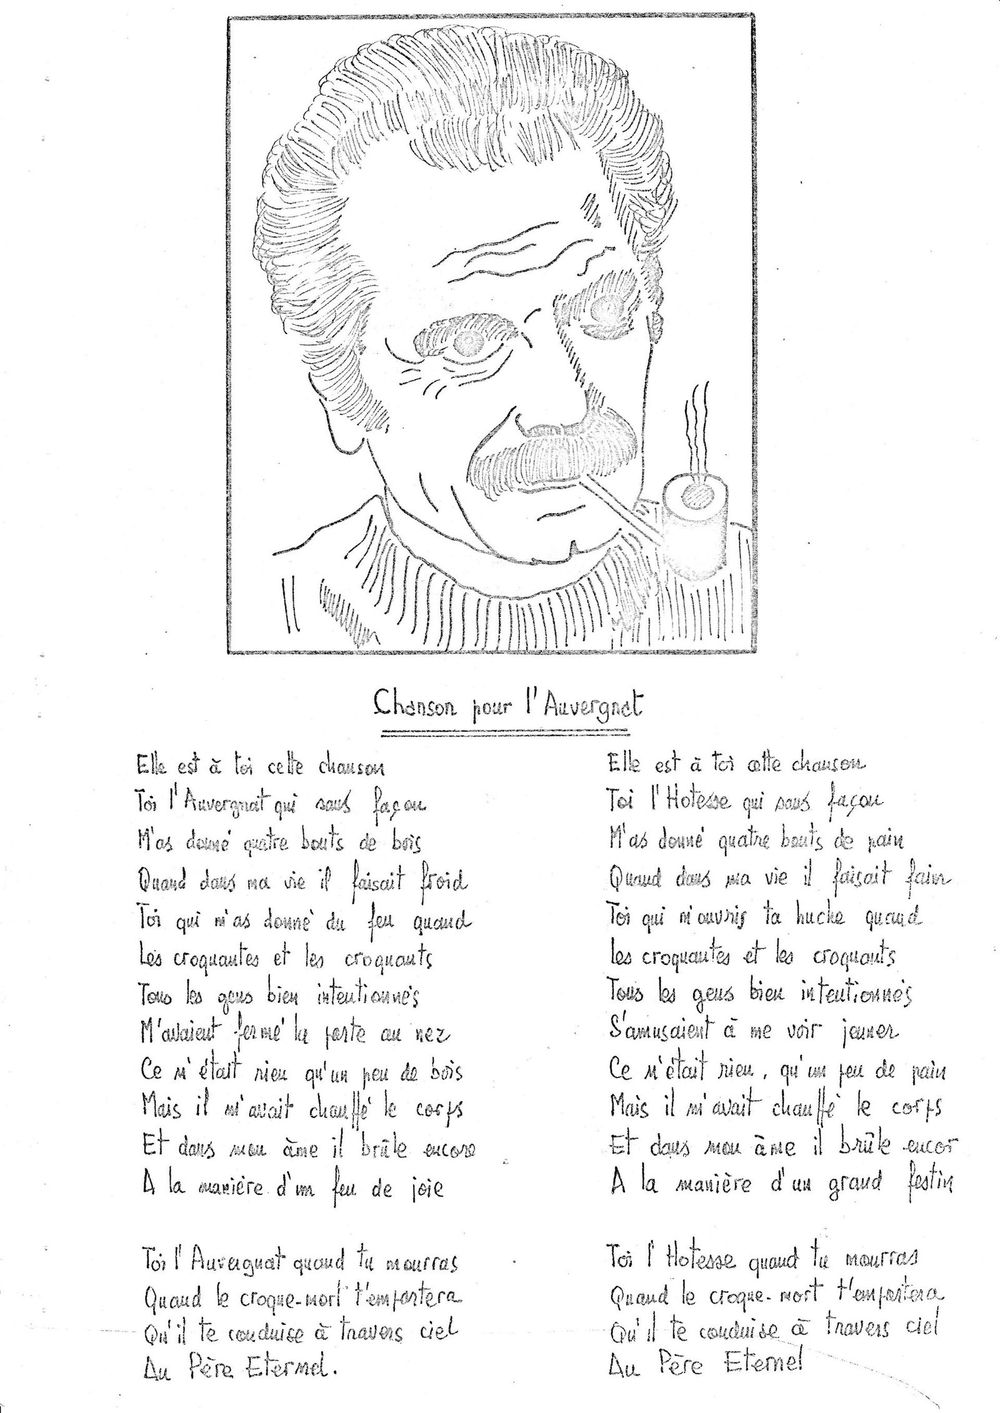 Chanson pour l'Auvergnat
Elle est à toi cette chanson
Toi l'Auvergnat qui sans façon
M'as donné quatre bouts de bois
Quand dans ma vie il faisait froid
Toi qui m'as donné du feu quand
Les croquantes et les croquants
Tous les gens bien intentionnés
M'avaient fermé la porte au nez
Ce n'était rien qu'un peu de bois
Mais il m'avait chauffé le corps
Et dans mon âme il brûle encore
A la manière d'un feu de joie
Toi l'Auvergnat quand tu mourras
Quand le croque-mort t'emportera
Qu'il te conduise à travers ciel
Au Père Eternel.
Elle est à toi cette chanson
Toi l'Hotesse qui sans façon
M'as donné quatre bouts de pain
Quand dans ma vie il faisait faim
Toi qui m'ouvris ta huche quand
les croquantes et les croquants
Tous les gens bien intentionnés
S'amusaient à me voir jeuner
Ce n'était rien, qu'un peu de pain
Mais il m'avait chauffé le corps
Et dans mon âme il brûle encor
A la manière d'un grand festin
Toi l'Hotesse quand tu mourras
Quand le croque-mort t'emportera
Qu'il te conduise à travers ciel
Au Père Eternel